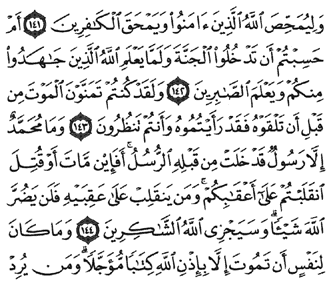 وَلِيُمَحِّصَ ٱللَّهُ ٱلَّذِينَ ءَامَنُوا۟ وَيَمْحَقَ ٱلْكَٰفِرِينَ ﴿١٤١﴾ أَمْ
حَسِبْتُمْ أَن تَدْخُلُوا۟ ٱلْجَنَّةَ وَلَمَّا يَعْلَمِ ٱللَّهُ ٱلَّذِينَ جَٰهَدُوا۟
مِنكُمْ وَيَعْلَمَ ٱلصَّٰبِرِينَ ﴿١٤٢﴾ وَلَقَدْ كُنتُمْ تَمَنَّوْنَ ٱلْمَوْتَ مِن
قَبْلِ أَن تَلْقَوْهُ فَقَدْ رَأَيْتُمُوهُ وَأَنتُمْ تَنظُرُونَ ﴿١٤٣﴾ وَمَا مُحَمَّدٌ
إِلَّا رَسُولٌ قَدْ خَلَتْ مِن قَبْلِهِ ٱلرُّسُلُ ۚ أَفَإِي۟ن مَّاتَ أَوْ قُتِلَ
ٱنقَلَبْتُمْ عَلَىٰٓ أَعْقَٰبِكُمْ ۚ وَمَن يَنقَلِبْ عَلَىٰ عَقِبَيْهِ فَلَن يَضُرَّ
ٱللَّهَ شَيْـًٔا ۗ وَسَيَجْزِى ٱللَّهُ ٱلشَّٰكِرِينَ ﴿١٤٤﴾ وَمَا كَانَ
لِنَفْسٍ أَن تَمُوتَ إِلَّا بِإِذْنِ ٱللَّهِ كِتَٰبًا مُّؤَجَّلًا ۗ وَمَن يُرِدْ